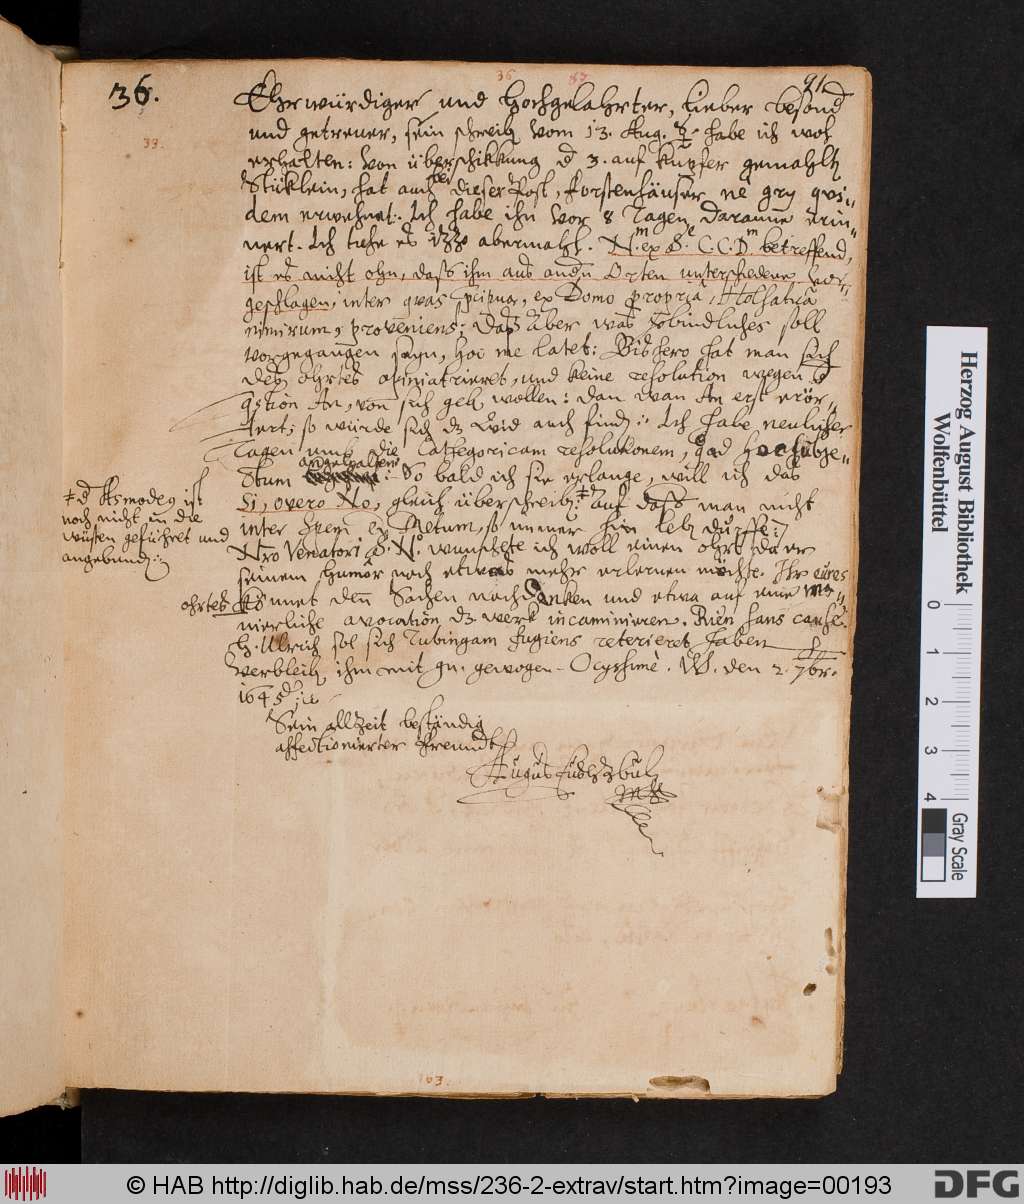 36.
36
87
91
33.
Ehrwürdiger und Hochgelahrter, lieber besond
und getreuer, sein schreib vom 13. Aug. habe ich wol
erhalten: Von überschikkung d 3. auf kupfer gemahlt
Stüklein, hat auch bei dieser Post, Forstenhäuser ne gry qui-
dem erwehnet. Ich habe ihn vor 8 Tagen daranne erin-
nert. Ich tuhe es abermahl. N. ex S. C. C. D betreffend,
ist es nicht ohn, dass ihm aus andn Orten unterschedene vor-
geschlagen, inter quas ex Domo propria, Holsatica
nimirum, proveniens; das Aber was soll
vorgegangen seyn, hoc me latet: Bishero hat man sich
des ohrtes opiniatrieret, und keine resolution wegen
qstion An, von sich geb wollen: dan wan An erst erör-
tert; so würde sich dz Quid auch find. Ich habe neulicher
Tagen umb die Cathegoricam resolutionem,
angehalten
So bald ich sie erlange, will ich das
Si, overo No, gleich überschreib: auf dass man nicht
inter Spem et Metum, so immer hin leb dürffe
≠ d Asmodeus ist
noch nicht in die
wüsten geführet und
angebund
Nro Venatori S. N. wunschete ich woll einen ohrt da er
seinem humôr noch etwas mehr erlernen möchte. Ihr eüres
ohrtes könnet den Sachen nachdenken und etwa auf eine ma-
nierliche avocation dz werk incaminieren. Rien sans cause.
H. Ulrich sol sich Tubingam fugiens reterieret haben
Verbleib ihm mit gn. gewogen Ocyssimè. W. den 2. 7br.
1645
Sein allzeit beständig
affectionierter Freundt
103.
Herzog August Bibliothek
Wolfenbüttel
0 1 2 3 4
Gray Scale
© HAB http://diglib.hab.de/mss/236-2-extrav/start.htm?image=00193
DFG